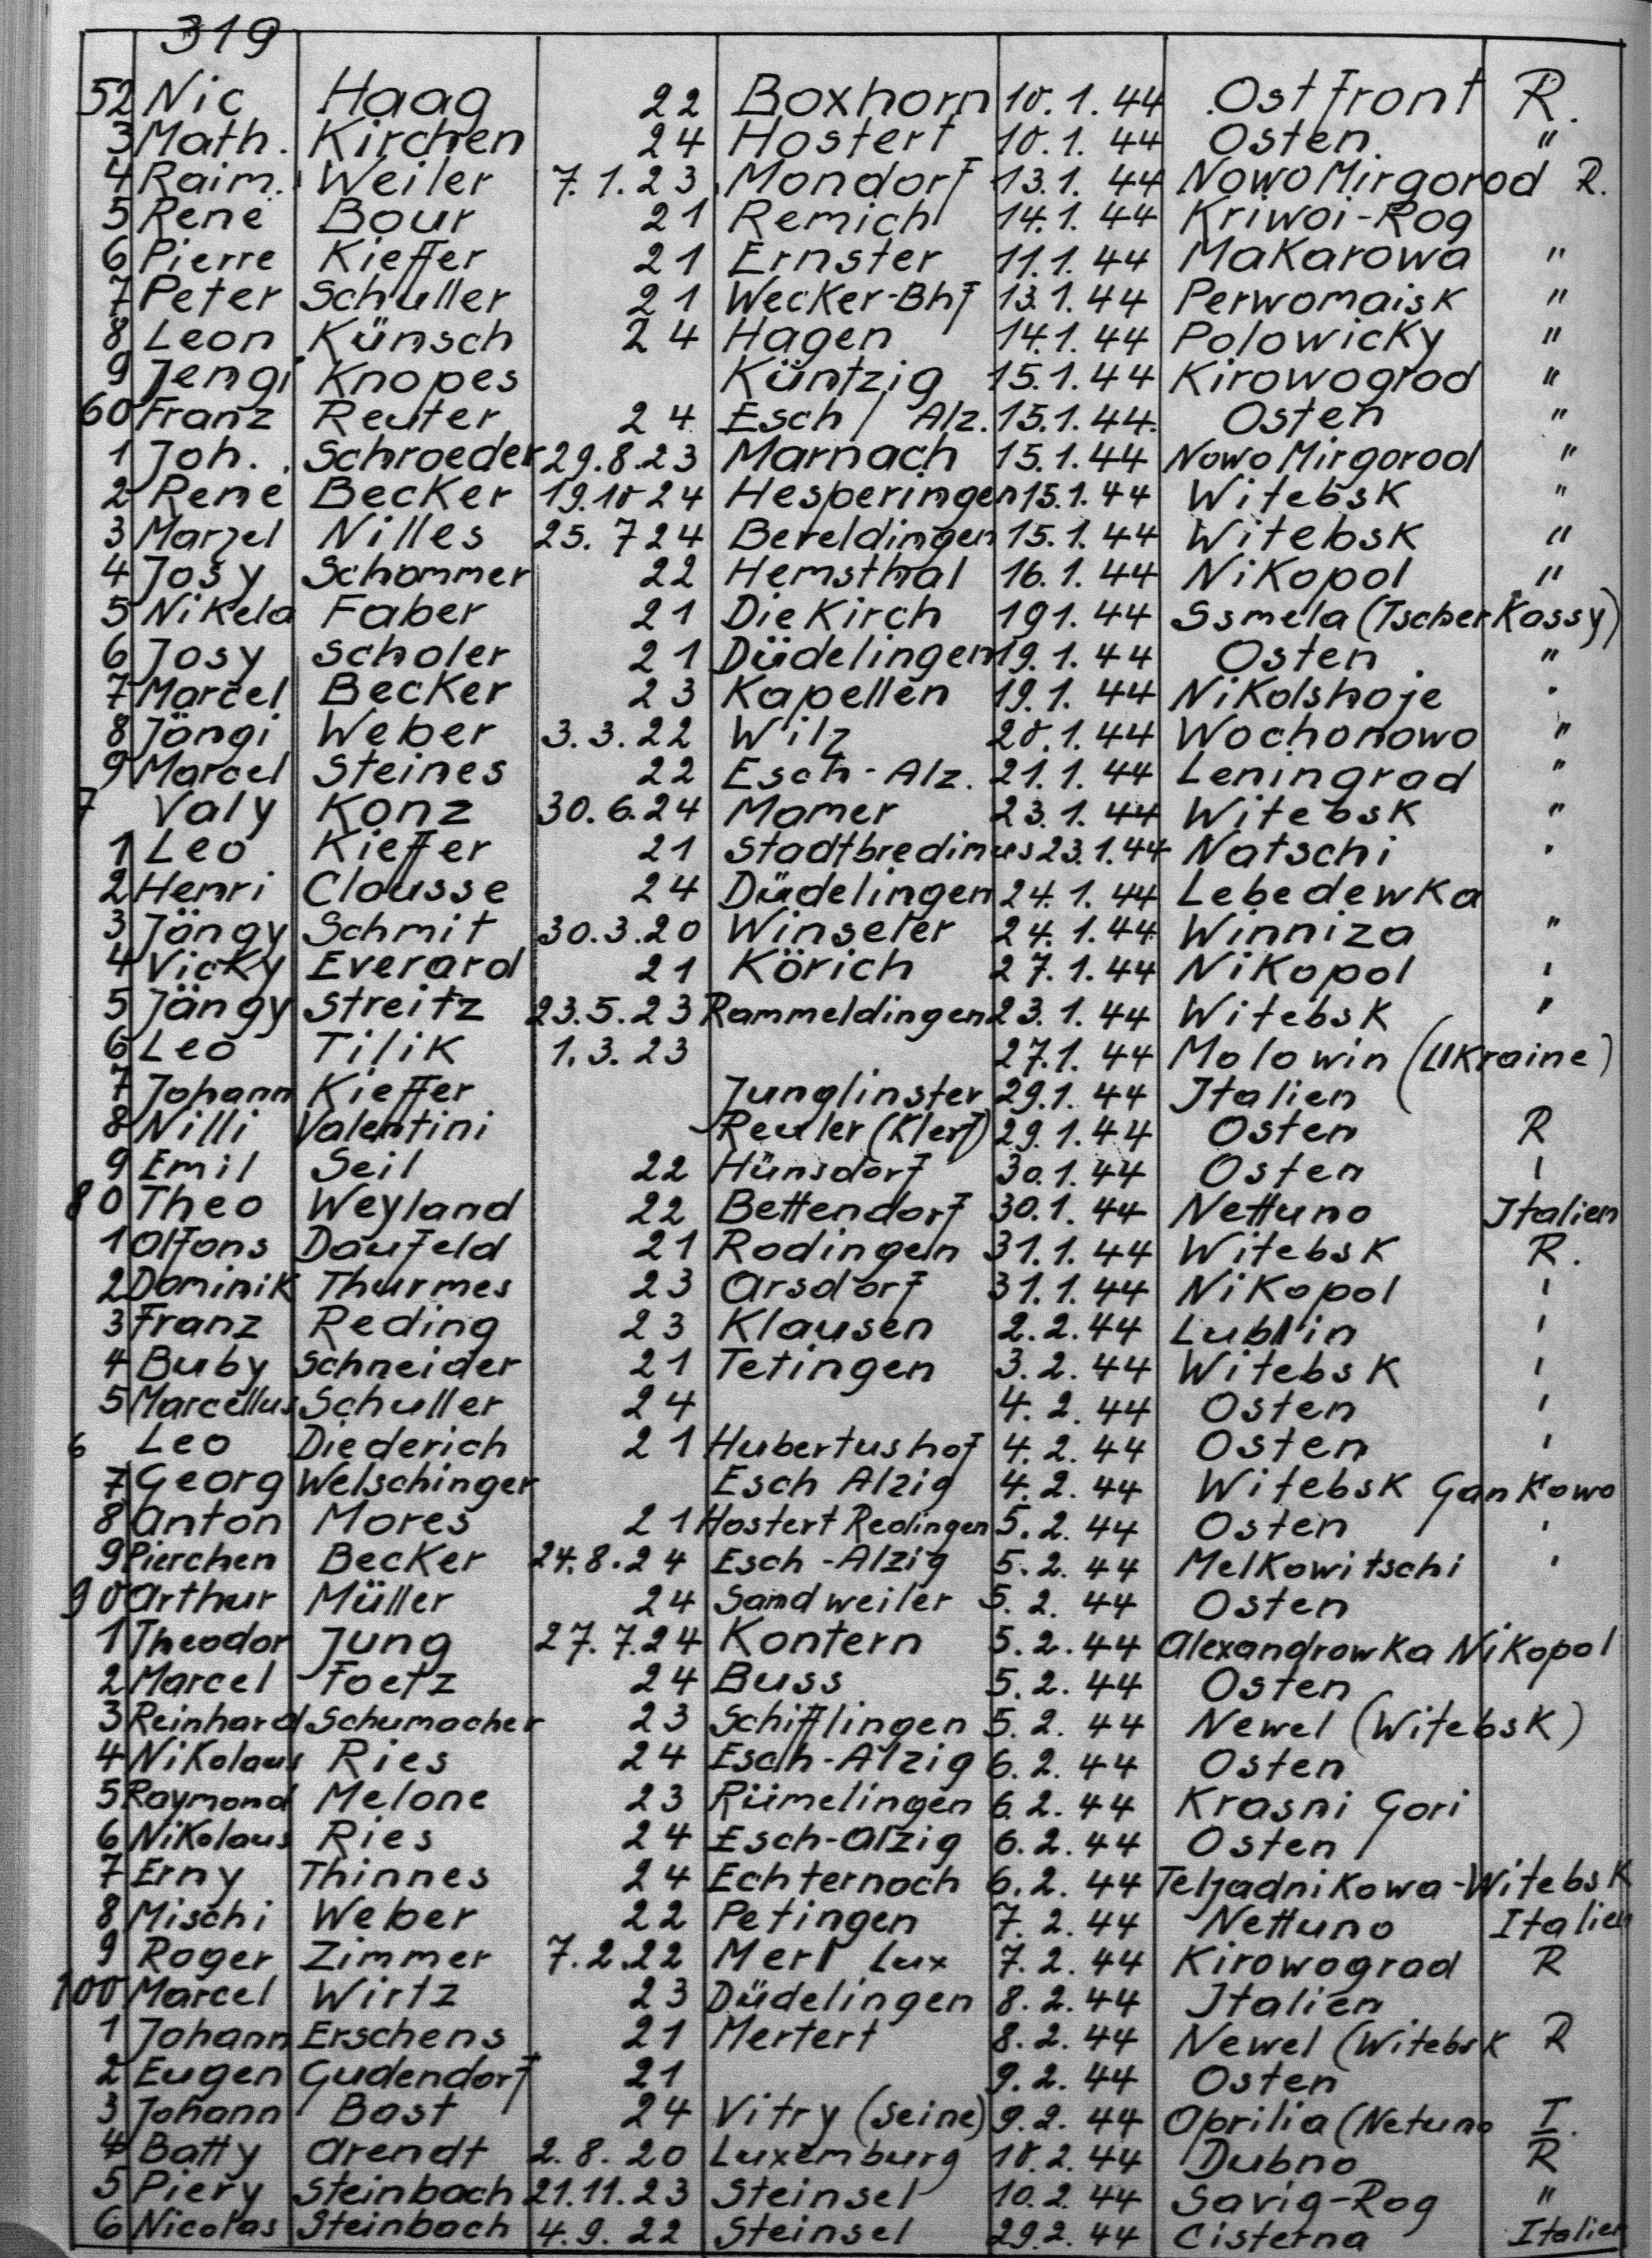 319
52 Nic Haag 22 Boxhorn 10.1.44 Ostfront R.
3 Math. Kirchen 24 Hostert 10.1.44 Osten "
4 Raim. Weiler 7.1.23 Mondorf 13.1.44 Nowo Mirgorod R.
5 René Bour 21 Remich 14.1.44 Kriwoi-Rog
6 Pierre Kieffer 21 Ernster 11.1.44 Makarowa "
7 Peter Schuller 21 Wecker-Bhf 13.1.44 Perwomaisk "
8 Leon Künsch 24 Hagen 14.1.44 Polowicky "
9 Jengi Knopes Küntzig 15.1.44 Kirowograd "
60 Franz Reuter 24 Esch / Alz. 15.1.44. Osten "
1 Joh. Schroeder 29.8.23 Marnach 15.1.44 Nowo Mirgorod "
2 René Becker 19.10 24 Hesperingen 15.1.44 Witebsk "
3 Marzel Nilles 25.7 24 Bereldingen 15.1.44 Witebsk "
4 Josy Schommer 22 Hemsthal 16.1.44 Nikopol "
5 Nikela Faber 21 Diekirch 191.44 Ssmela (Tscherkassy)
6 Josy Scholer 21 Düdelingen 19.1.44 Osten "
7 Marcel Becker 23 Kapellen 19.1.44 Nikolshoje "
8 Jängi Weber 3.3.22 Wilz 20.1.44 Wochonowo "
9 Marcel Steines 22 Esch-Alz. 21.1.44 Leningrad "
7 Valy Konz 30.6.24 Mamer 23.1.44 Witebsk "
1 Leo Kieffer 21 Stadtbredimus 23.1.44 Natschi "
2 Henri Clausse 24 Düdelingen 24.1.44 Lebedewka
3 Jängy Schmit 30.3.20 Winseler 24.1.44 Winniza "
4 Vicky Everard 21 Körich 27.1.44 Nikopol "
5 Jängy Streitz 23.5.23 Rammeldingen 23.1.44 Witebsk "
6 Leo Tilik 1.3.23 27.1.44 Molowin (Ukraine)
7 Johann Kieffer Junglinster 29.1.44 Italien
8 Nilli Valentini Reuler (Klerf) 29.1.44 Osten R
9 Emil Seil 22 Hünsdorf 30.1.44 Osten "
80 Theo Weyland 22 Bettendorf 30.1.44 Nettuno Italien
1 Alfons Daufeld 21 Rodingen 31.1.44 Witebsk R.
2 Dominik Thurmes 23 Arsdorf 31.1.44 Nikopol "
3 Franz Reding 23 Klausen 2.2.44 Lublin "
4 Buby Schneider 21 Tetingen 3.2.44 Witebsk "
5 Marcellus Schuller 24 4.2.44 Osten "
6 Leo Diederich 21 Hubertushof 4.2.44 Osten "
7 Georg Welschinger Esch Alzig 4.2.44 Witebsk Gankowo
8 Anton Mores 21 Hostert Redingen 5.2.44 Osten "
9 Pierchen Becker 24.8.24 Esch-Alzig 5.2.44 Melkowitschi "
90 Arthur Müller 24 Sandweiler 5.2.44 Osten
1 Theodor Jung 27.7.24 Kontern 5.2.44 Alexandrowka Nikopol
2 Marcel Foetz 24 Buss 5.2.44 Osten
3 Reinhard Schumacher 23 Schifflingen 5.2.44 Newel (Witebsk)
4 Nikolaus Ries 24 Esch-Alzig 6.2.44 Osten
5 Raymond Melone 23 Rümelingen 6.2.44 Krasni Gori
6 Nikolaus Ries 24 Esch-Alzig 6.2.44 Osten
7 Erny Thinnes 24 Echternach 6.2.44 Teljadnikowa-Witebsk
8 Mischi Weber 22 Petingen 7.2.44 Nettuno Italien
9 Roger Zimmer 7.2.22 Merl Lux 7.2.44 Kirowograd R
100 Marcel Wirtz 23 Düdelingen 8.2.44 Italien
1 Johann Erschens 21 Mertert 8.2.44 Newel (Witebsk R
2 Eugen Gudendorf 21 9.2.44 Osten
3 Johann Bast 24 Vitry (Seine) 9.2.44 Aprilia (Netuno I.
4 Batty Arendt 2.8.20 Luxemburg 10.2.44 Dubno R
5 Piery Steinbach 21.11.23 Steinsel 10.2.44 Savig-Rog "
6 Nicolas Steinbach 4.9.22 Steinsel 29.2.44 Cisterna Italien